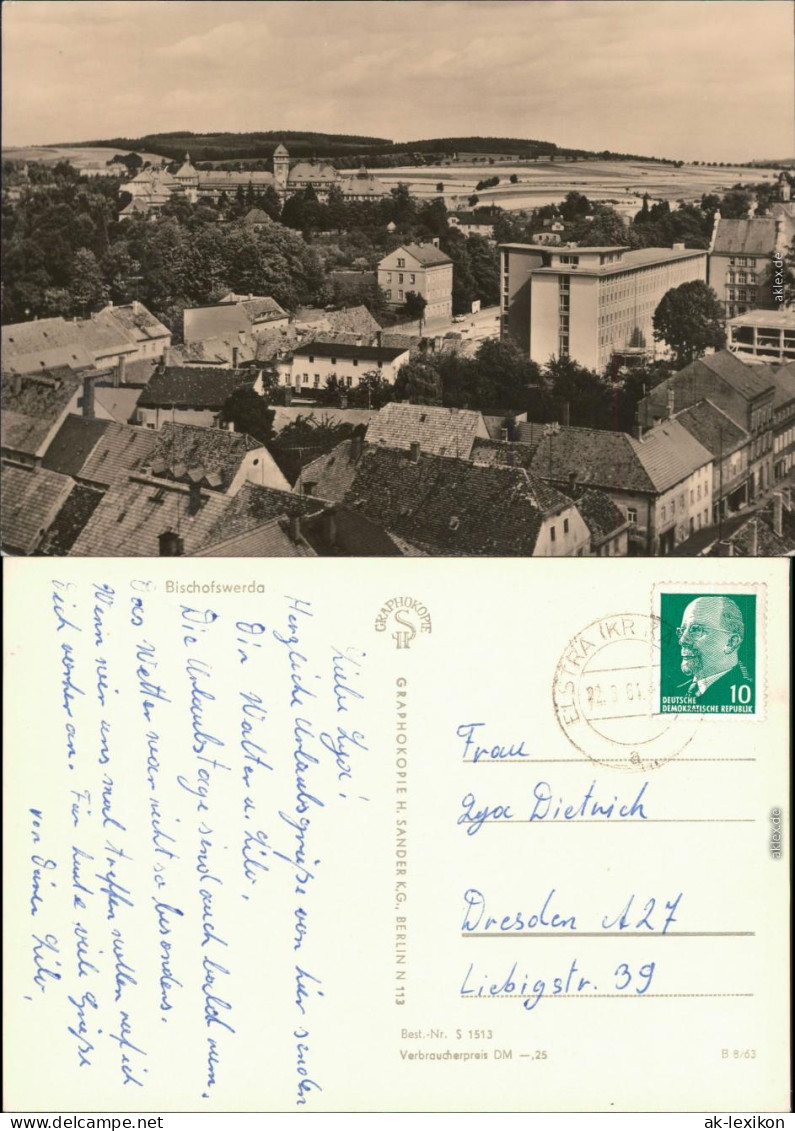 Bischofswerda
Liebe Lya!
Herzliche Urlaubsgrüße von hier senden
Dir Walter u. Lilo.
Die Urlaubstage sind auch bald rum.
Das Wetter war nicht so besonders.
Wenn wir uns mal treffen wollen ruf ich
Dich vorher an. Für heute viele Grüße
von Deiner Lilo.
GRAPHOKOPIE
HS
GRAPHOKOPIE H. SANDER K.G., BERLIN N 113
ELSTRA (KR
a
10
DEUTSCHE
DEMOKRATISCHE REPUBLIK
Frau
Lya Dietrich
Dresden A27
Liebigstr. 39
Best.-Nr. S 1513
Verbraucherpreis DM —,25
B 8/63
aklex.de
aklex.de
ak-lexikon
ak-lexikon.com